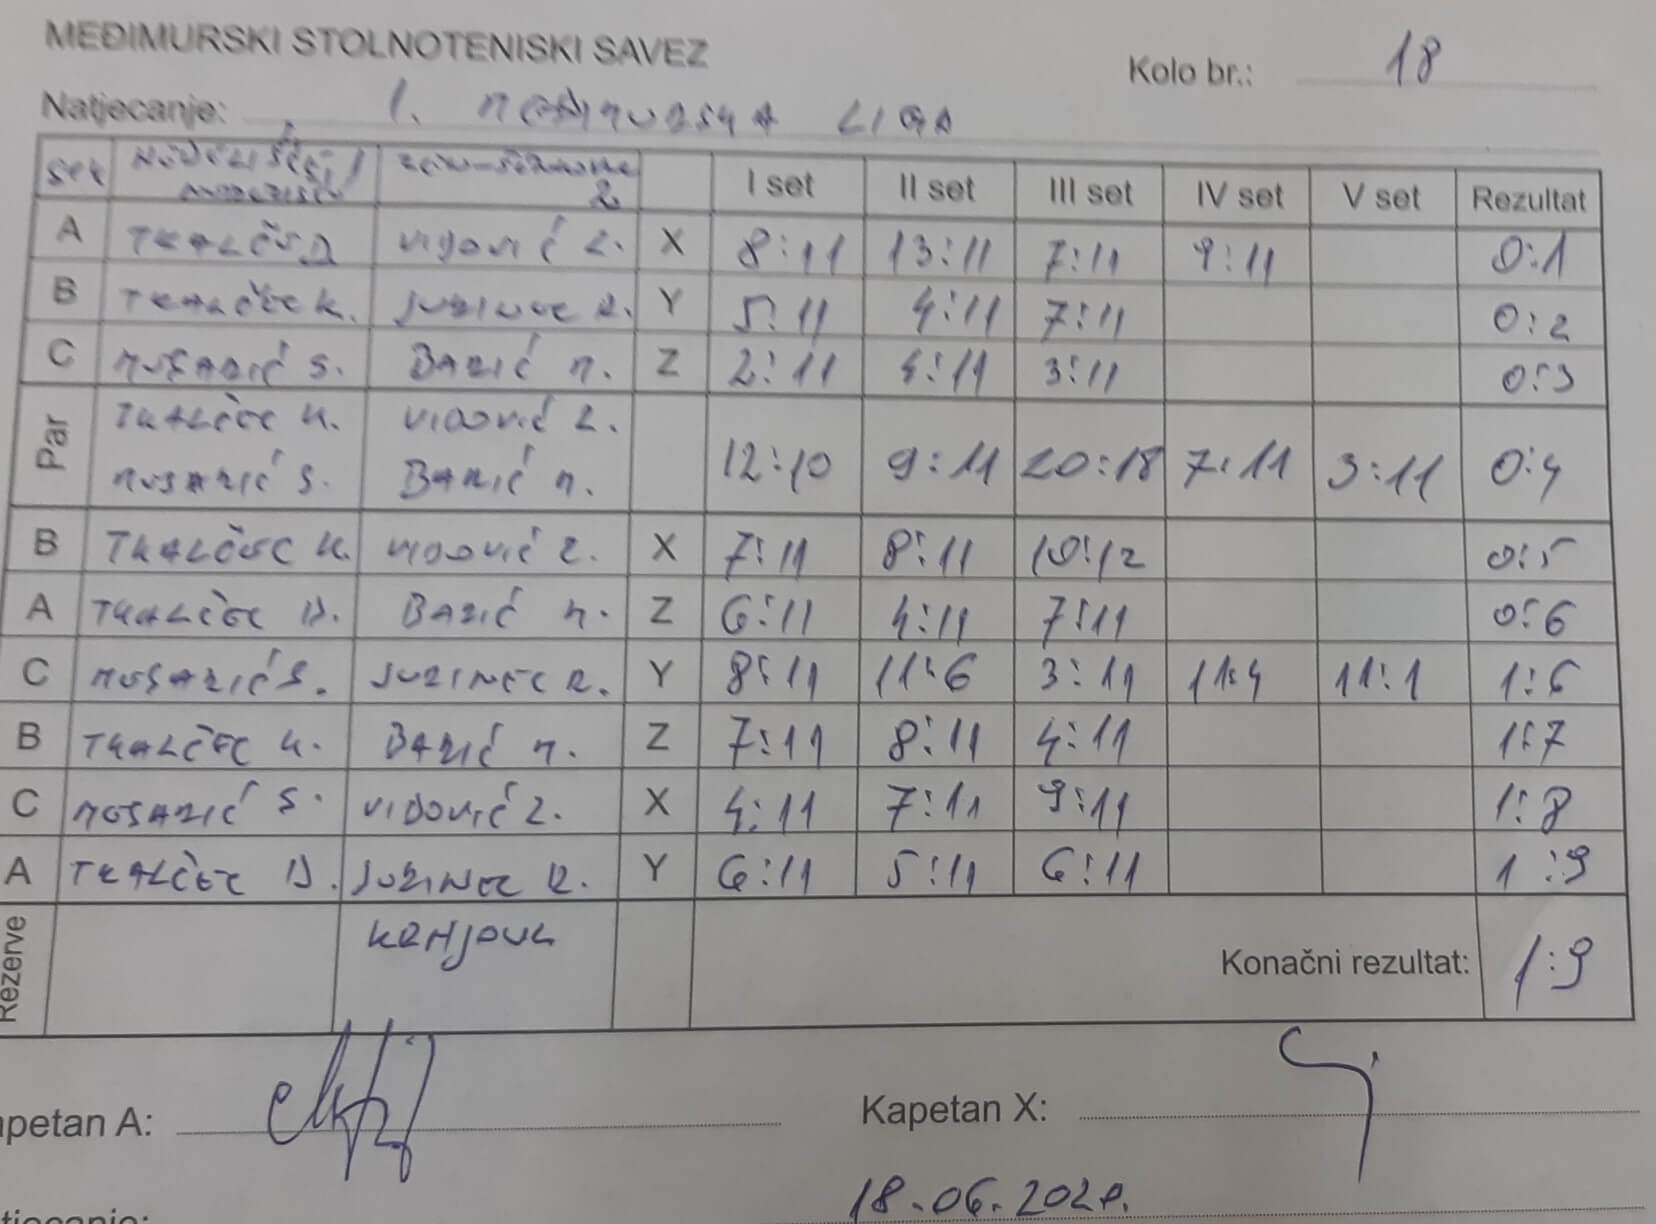 MEĐIMURSKI STOLNOTENISKI SAVEZ
Kolo br.: 18
Natjecanje: 1. MEĐIMURSKA LIGA
I set II set III set IV set V set Rezultat
A TKALČEC D. VIDOVIĆ Z. X 8:11 13:11 7:11 9:11 0:1
B TKALČEC K. JURINEC R. Y 5:11 4:11 7:11 0:2
C MUSARIĆ S. BARIĆ M. Z 2:11 4:11 3:11 0:3
Par TKALČEC K. VIDOVIĆ Z.
MUSARIĆ S. BARIĆ M. 12:10 9:11 20:18 7:11 3:11 0:4
B TKALČEC K. VIDOVIĆ Z. X 7:11 8:11 10:12 0:5
A TKALČEC D. BARIĆ M. Z 6:11 4:11 7:11 0:6
C MUSARIĆ S. JURINEC R. Y 8:11 11:6 3:11 11:4 11:1 1:6
B TKALČEC K. BARIĆ M. Z 7:11 8:11 4:11 1:7
C MUSARIĆ S. VIDOVIĆ Z. X 4:11 7:11 9:11 1:8
A TKALČEC D. JURINEC R. Y 6:11 5:11 6:11 1:9
Rezerve
Konačni rezultat: 1:9
apetan A:
Kapetan X: